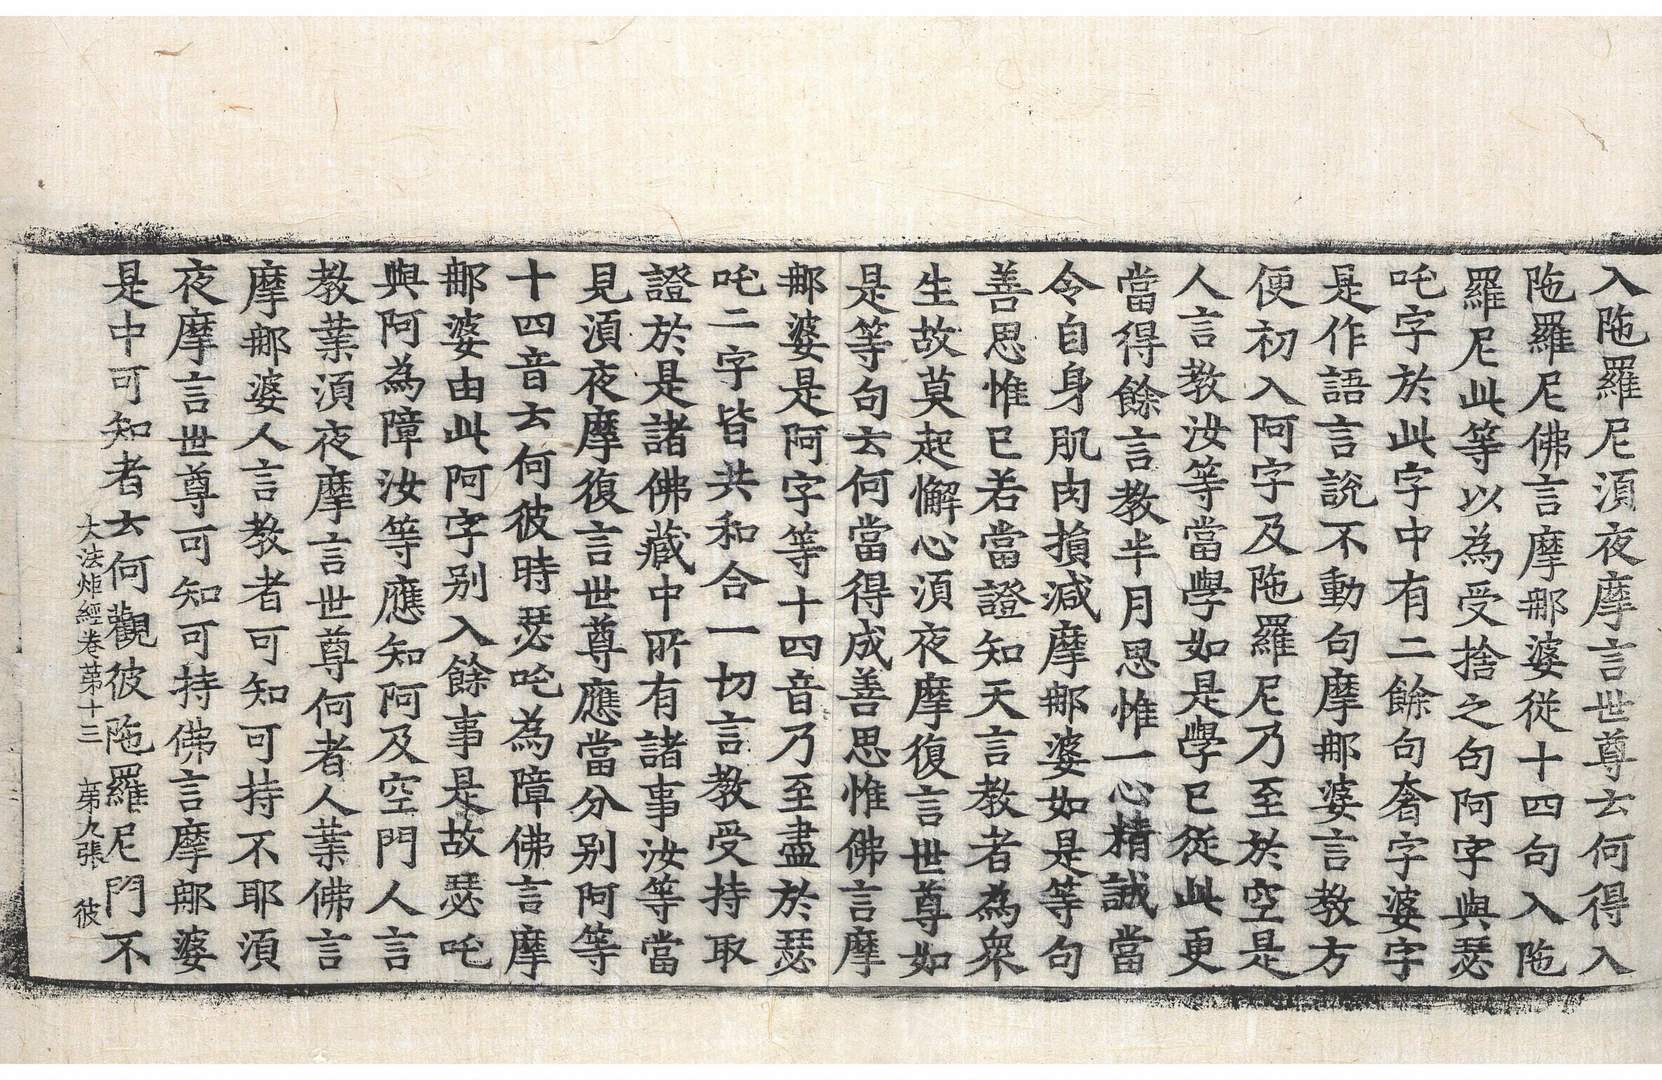 入陁羅尼湏夜摩言世尊云何得入
陁羅尼佛言摩那婆從十四句入陁
羅尼此等以為受捨之句阿字與瑟
吒字於此字中有二餘句奢字婆字
是作語言言說不動句摩那婆言教方
便初入阿字及陁羅尼乃至於空是
人言教汝等當學如是學已從此更
當得餘言教半月思惟一心精誠當
令自身肌肉損減摩那婆如是等句
善思惟已若當證知天言教者為衆
生故莫起懈心湏夜摩復言世尊如
是等句云何當得成善思惟佛言摩
那婆是阿字等十四音乃至盡於瑟
吒二字皆共和合一切言教受持取
證於是諸佛藏中所有諸事汝等當
見湏夜摩復言世尊應當分别阿等
十四音云何彼時瑟吒為障佛言摩
那婆由此阿字别入餘事是故瑟吒
與阿為障汝等應知阿及空門人言
教業湏夜摩言世尊何者人業佛言
摩那婆人言教者可知可持不耶湏
夜摩言世尊可知可持佛言摩那婆
是中可知者云何觀彼陁羅尼門不
大法炬經卷苐十三 苐九張 彼